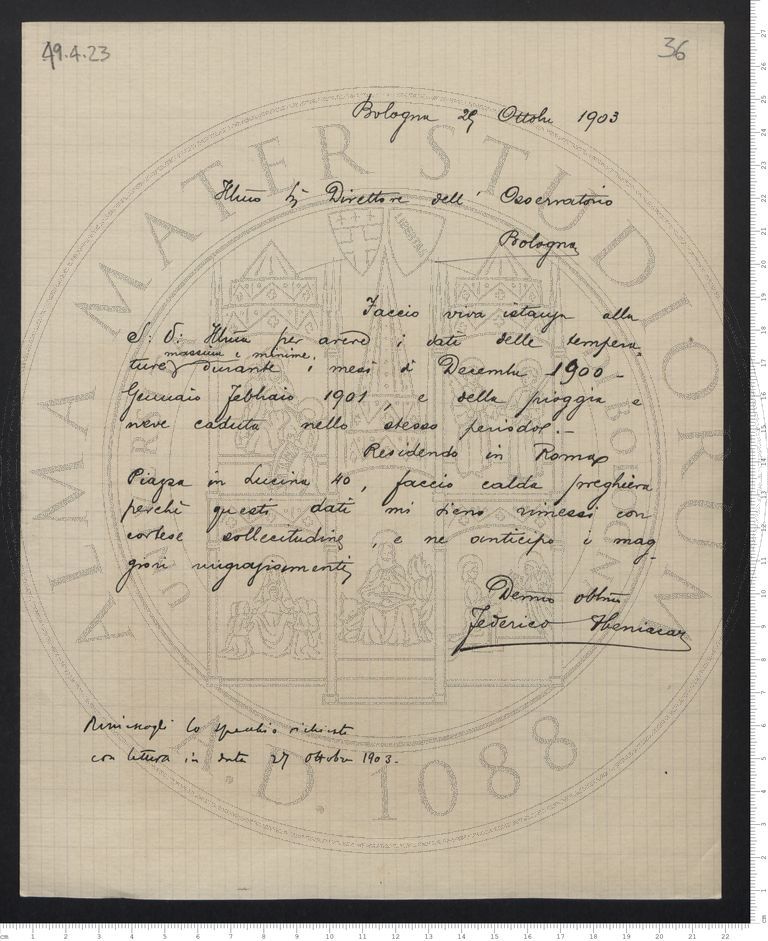 49.4.23
36
Bologna 25 Ottobre 1903
Illmo Sig Direttore dell' Osservatorio
Bologna
Faccio viva istanza alla
S: V: Illma per avere i dati delle tempera-
massime e minime.
ture durante i mesi di Decembre 1900 -
Gennaio Febbraio 1901, e della pioggia e
neve caduta nello stesso periodo. -
Residendo in Roma
Piazza in Lucina 40, faccio calda preghiera
perchè questi dati mi sieno rimessi con
cortese sollecitudine, e ne anticipo i mag-
giori ringraziamenti
Devmo obblmo
Federico
Rimessogli lo specchio richiesto
con lettera in data 27 ottobre 1903.
ALMA MATER STUDIORUM
A.D. 1088